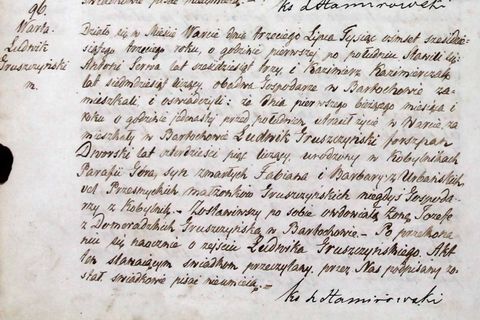 ks. L. Hamirowski
96.
Warta.
Ludwik
Gruszczyński
m.
Działo się w Mieście Warcie dnia trzeciego Lipca Tysiąc ośmset sześćdzie-
siątego trzeciego roku, o godzinie pierwszej po południu. Stawili się
Antoni Serwa lat sześćdziesiąt trzy, i Kazimierz Kaźmierczak
lat siedmdziesiąt liczący, obadwa Gospodarze w Bartochowie za-
mieszkali i oświadczyli: że dnia pierwszego bieżącego miesiąca i
roku o godzinie jedenastej przed południem utracił życie w Warcie za-
mieszkały w Bartochowie Ludwik Gruszczyński forszpan
Dworski lat czterdzieści pięć liczący, urodzony w Kobylnikach
Parafii Góra, syn zmarłych Fabiana i Barbary z Urbańskich
vel Przesnyckich małżonków Gruszczyńskich niegdyś Gospoda-
rzy z Kobylnik. Zostawiwszy po sobie owdowiałą żonę Józefę
z Domoradzkich Gruszczyńską w Bartochowie. Po przekona-
niu się naocznie o zejściu Ludwika Gruszczyńskiego. Akt
ten stawającym świadkom przeczytany, przez Nas podpisany zo-
stał, świadkowie pisać nieumieją.
ks. L. Hamirowski